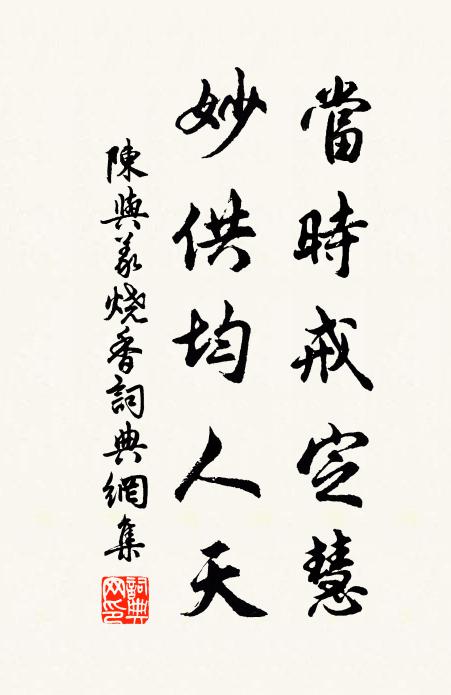 當時戒定慧
妙供均人天
陳與義燒香詞典網集
詞典网印